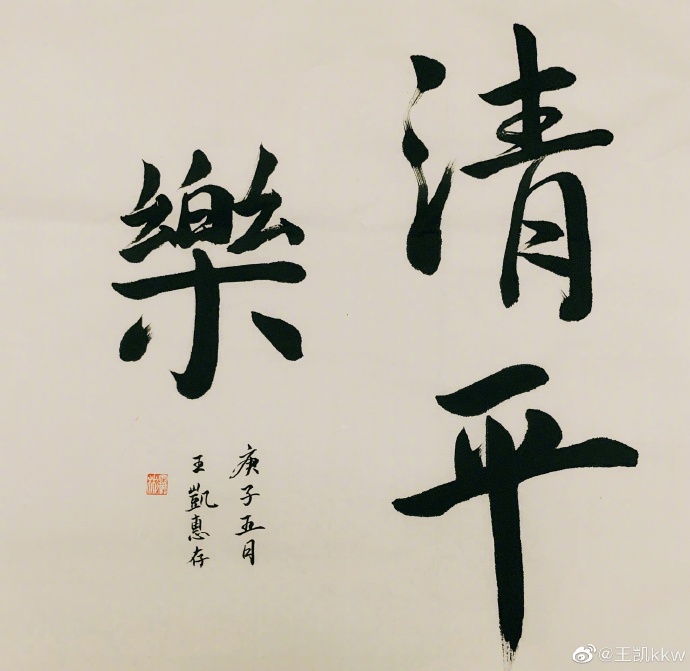 清平
樂
庚子五月
王凱惠存
@王凯kkw